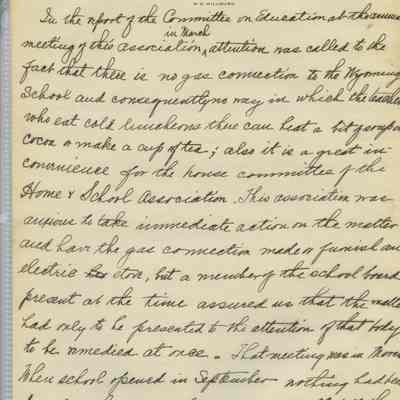 In the report of the Committee on Education at the annual
in March
meeting of this association, attention was called to the
fact that there is no gas connection to the Wyoming
School and consequently no way in which the teachers
who eat cold luncheons there can heat a bit of soup or
cocoa or make a cup of tea; also it is a great in-
convenience for the house committee of the
Home & School Association. This association was
anxious to take immediate action on the matter
and have the gas connection made or furnish an
electric stove, but a member of the school board
present at the time assured us that the matter
had only to be presented to the attention of that body
to be remedied at once. That meeting was in
When school opened in September nothing had been